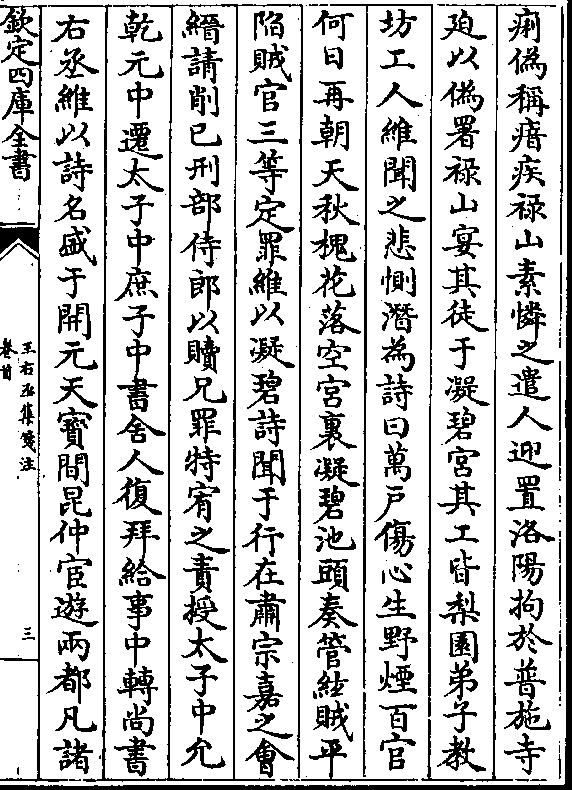 痢偽稱瘖疾祿山素憐之遣人迎置洛陽拘於普施寺
迫以偽署祿山宴其徒于凝碧宮其工皆梨園弟子教
坊工人維聞之悲惻潛為詩曰萬户傷心生野煙百官
何日再朝天秋槐花落空宮裏凝碧池頭奏管絃賊平
陷賊官三等定罪維以凝碧詩聞于行在肅宗嘉之會
縉請削已刑部侍郎以贖兄罪特宥之責授太子中允
乾元中遷太子中庶子中書舍人復拜給事中轉尚書
右丞維以詩名盛于開元天寳間昆仲宦遊兩都凡諸
欽定四庫全書
王右丞集箋注
卷首
三